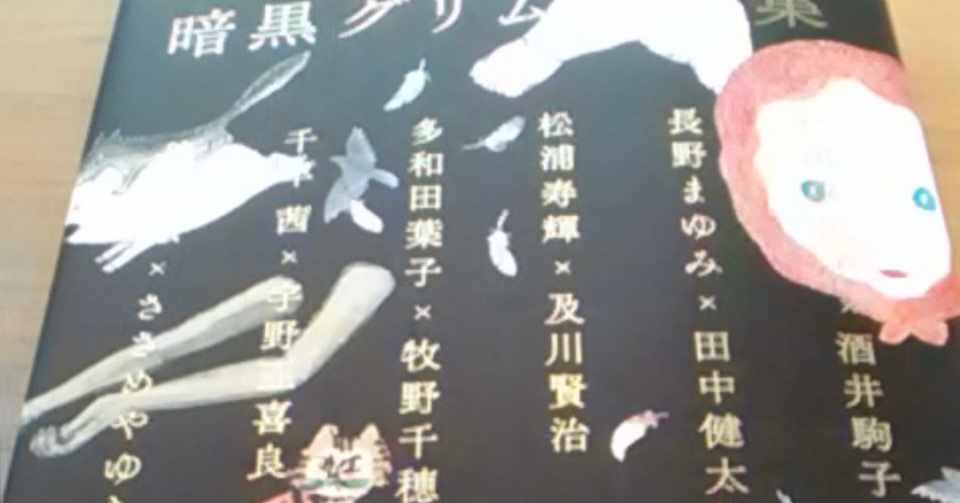 暗黒グリム 集
× 酒井駒子
長野まゆみ × 田中健太
松浦寿輝 × 及川賢治
多和田葉子 × 牧野千穂
千 茜 × 宇野 喜良
× ささめやゆ